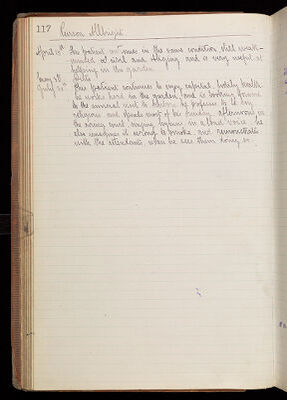 117 Person Allbright
April 18th The patient continues in the same condition still weak-
minded but civil and obliging and is very useful at
helping in the garden
May 28
July 30th This patient continues to enjoy capital bodily health
he works hard in the garden, and is looking forward
to the annual visit to he professes to be very
religious and spends most of his Sunday afternoons in
the airing court singing hymns in a loud voice he
also imagines it wrong to smoke and remonstrates
with the attendants when he sees them doing so.